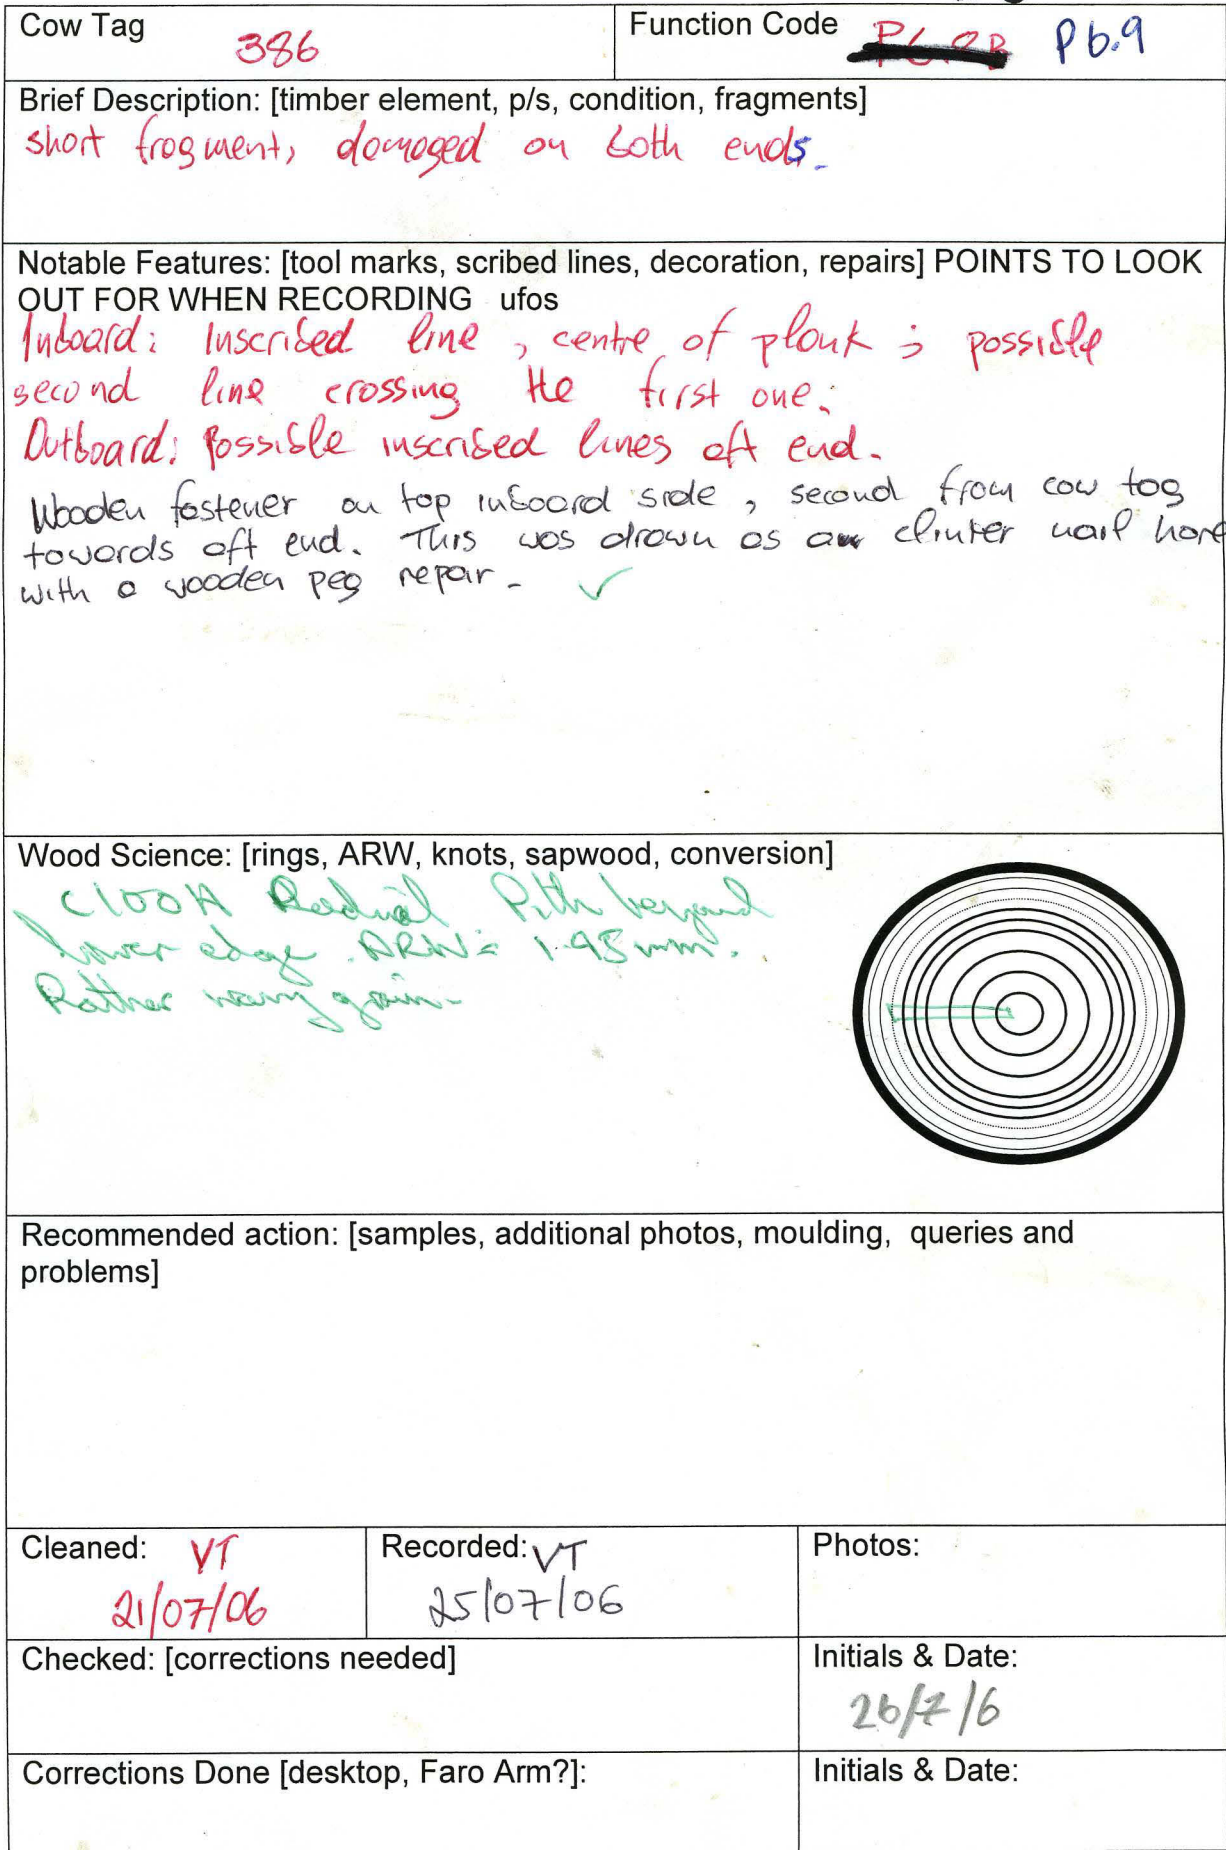 Cow Tag
386
Function Code
P6.9
Brief Description: [timber element, p/s, condition, fragments]
short fragment, damaged on both ends.
Notable Features: [tool marks, scribed lines, decoration, repairs] POINTS TO LOOK
OUT FOR WHEN RECORDING ufos
Inboard: Inscribed line, centre of plank; possible
second line crossing the first one.
Outboard: possible inscribed lines aft end.
Wooden fastener on top inboard side, second from cow tag
towards aft end. This was drawn as clinker nail
with a wooden peg repair.
Wood Science: [rings, ARW, knots, sapwood, conversion]
Radial Pith beyond
lower edge. ARW = 1.95mm.
Rather wavy grain.
Recommended action: [samples, additional photos, moulding, queries and
problems]
Cleaned: VT
21/07/06
Recorded: VT
25/07/06
Photos:
Checked: [corrections needed]
Initials & Date:
26/7/6
Corrections Done [desktop, Faro Arm?]:
Initials & Date: